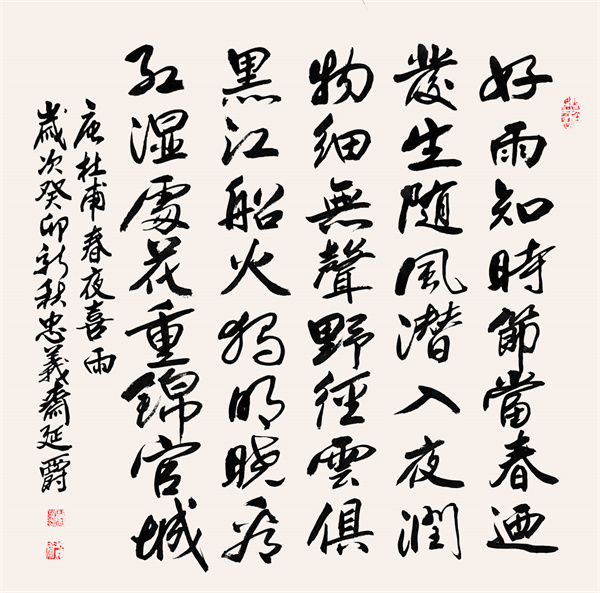 好雨知時節當春迺
發生随風潜入夜潤
物細無聲野徑雲俱
黑江船火独明晓看
红湿處花重錦官城
唐杜甫春夜喜雨
歲次癸卯新秋忠義齋延爵